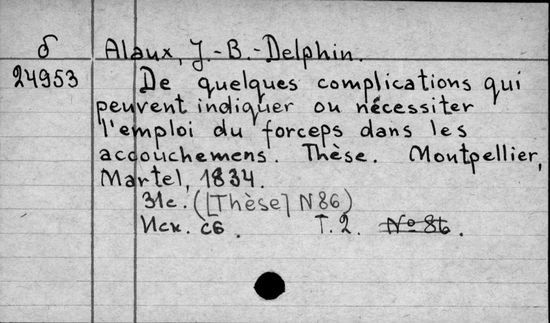 б Alaux, J.-B.-Delphin.
24953 De quelques complications qui
peuvent indiquer ou nécessiter
l'emploi du forceps dans les
accouchemens. Thèse. Montpellier,
Martel, 1834.
31c. ([Thèse] N 86)
Иск. сб. T. 2. № 86.